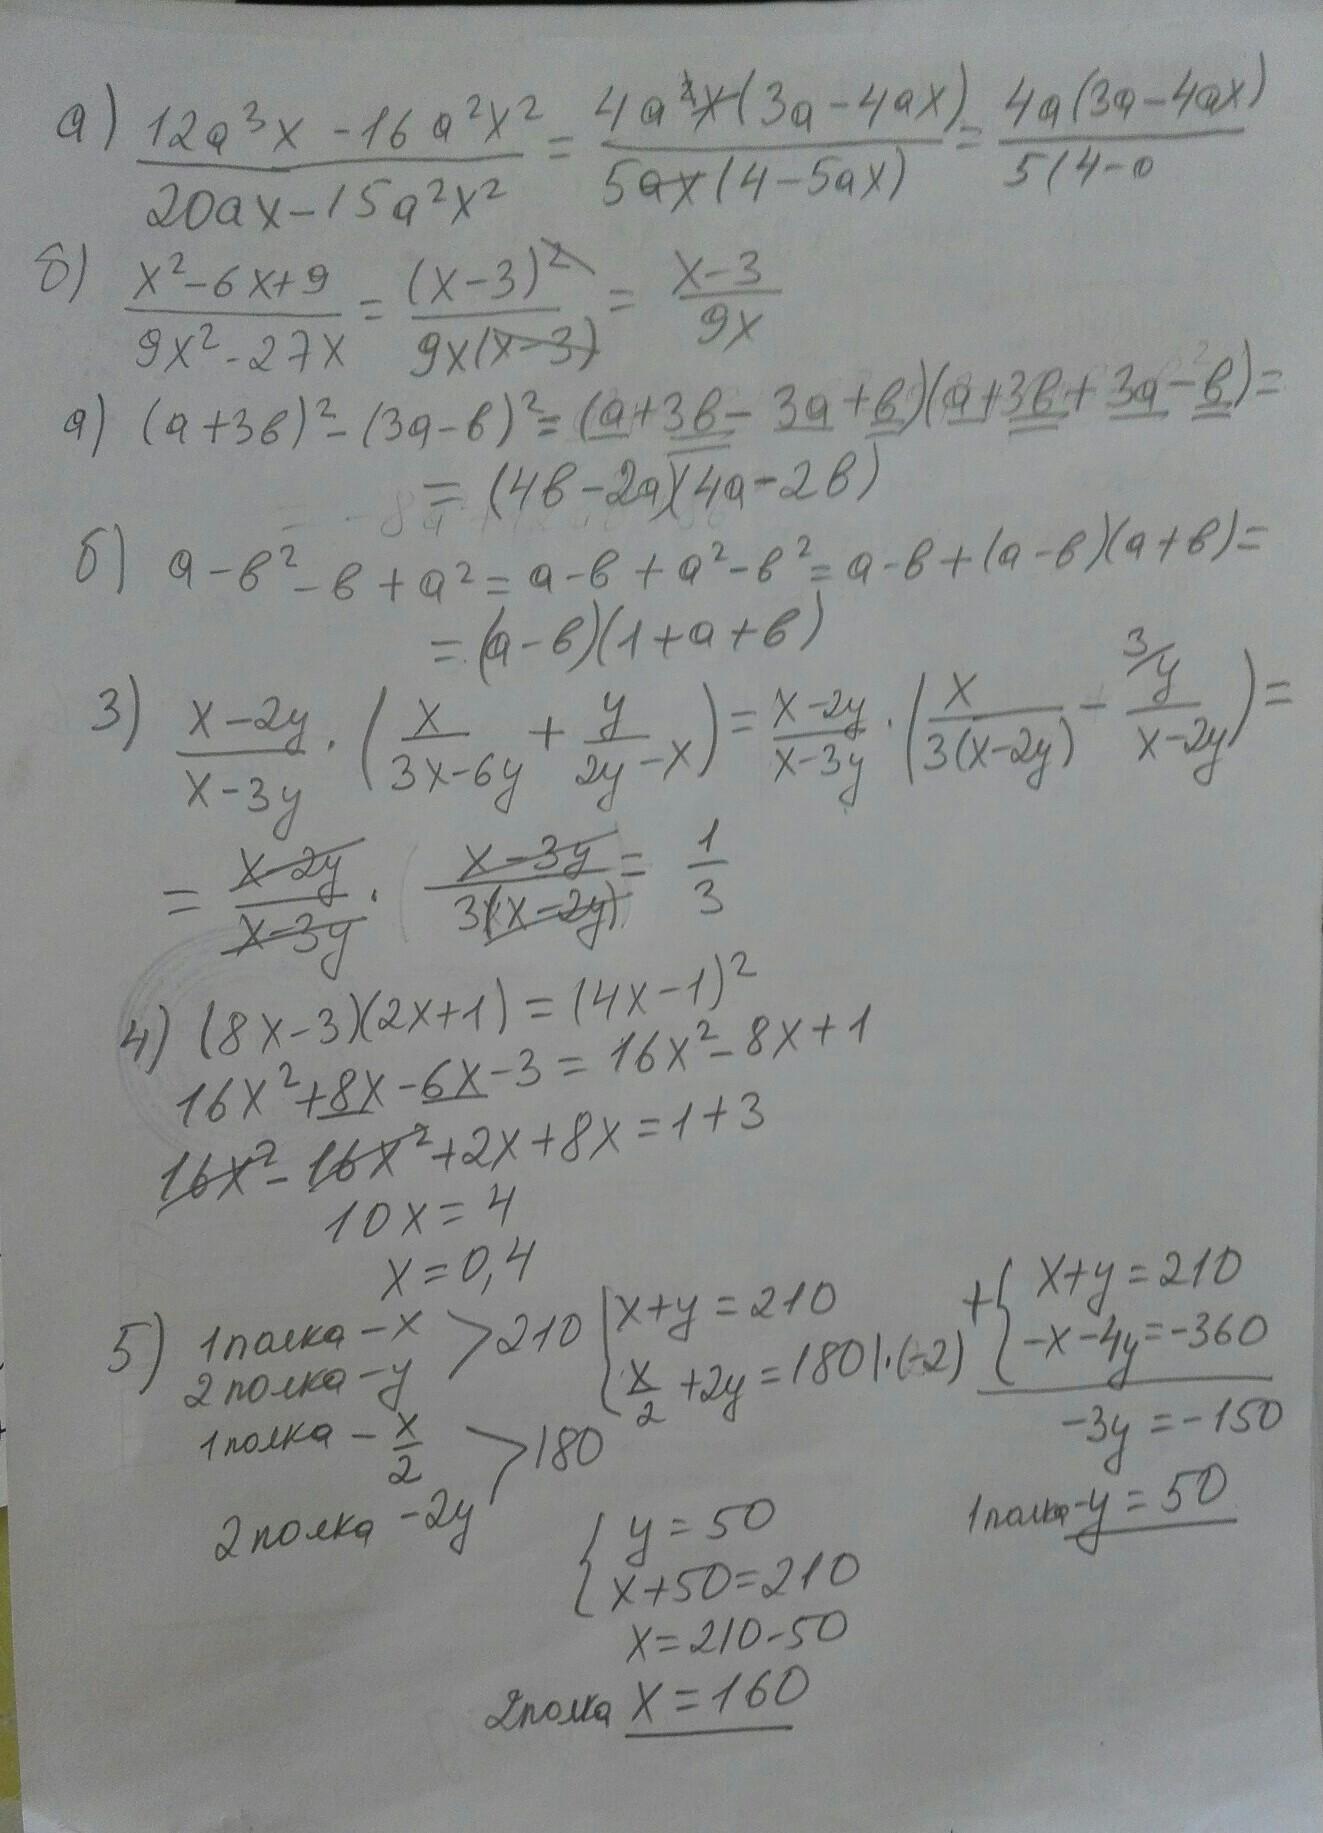 а) (12a³x - 16a²x²)/(20ax - 15a²x²) = (4a²x(3a - 4ax))/(5ax(4 - 5ax)) = (4a(3a - 4ax))/(5(4 -
б) (x² - 6x + 9)/(9x² - 27x) = (x - 3)²/(9x(x - 3)) = (x - 3)/(9x)
а) (a + 3в)² - (3a - в)² = (a + 3в - 3a + в)(a + 3в + 3a - в) =
= (4в - 2a)(4a - 2в)
б) a - в² - в + a² = a - в + a² - в² = a - в + (a - в)(a + в) =
= (a - в)(1 + a + в)
3) (x - 2y)/(x - 3y) · (x/(3x - 6y) + y/(2y - x)) = (x - 2y)/(x - 3y) · (x/(3(x - 2y)) - ³⁄y/(x - 2y)) =
= (x - 2y)/(x - 3y) · (x - 3y)/(3(x - 2y)) = 1/3
4) (8x - 3)(2x + 1) = (4x - 1)²
16x² + 8x - 6x - 3 = 16x² - 8x + 1
16x² - 16x² + 2x + 8x = 1 + 3
10x = 4
x = 0,4
5) 1 полка - x
2 полка - y
> 210
1 полка - x/2
2 полка - 2y
> 180
{ x + y = 210
x/2 + 2y = 180 | · (-2)
+ { x + y = 210
-x - 4y = -360
-3y = -150
1 полка - y = 50
{ y = 50
x + 50 = 210
x = 210 - 50
2 полка x = 160